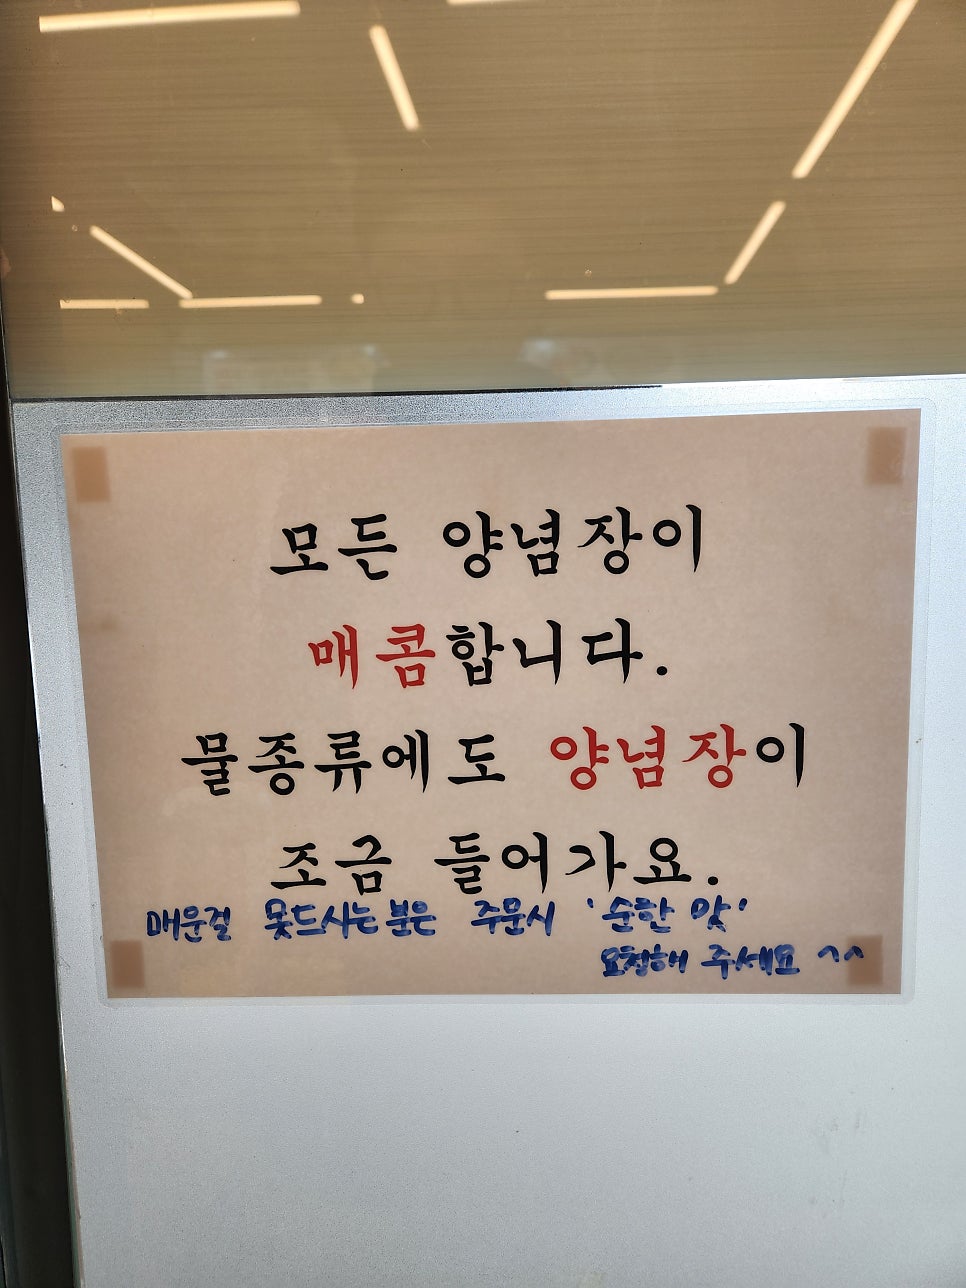 모든 양념장이
매콤합니다.
물종류에도 양념장이
조금 들어가요.
매운걸 못드시는분은 주문시 '순한 맛'
요청해 주세요 ^^